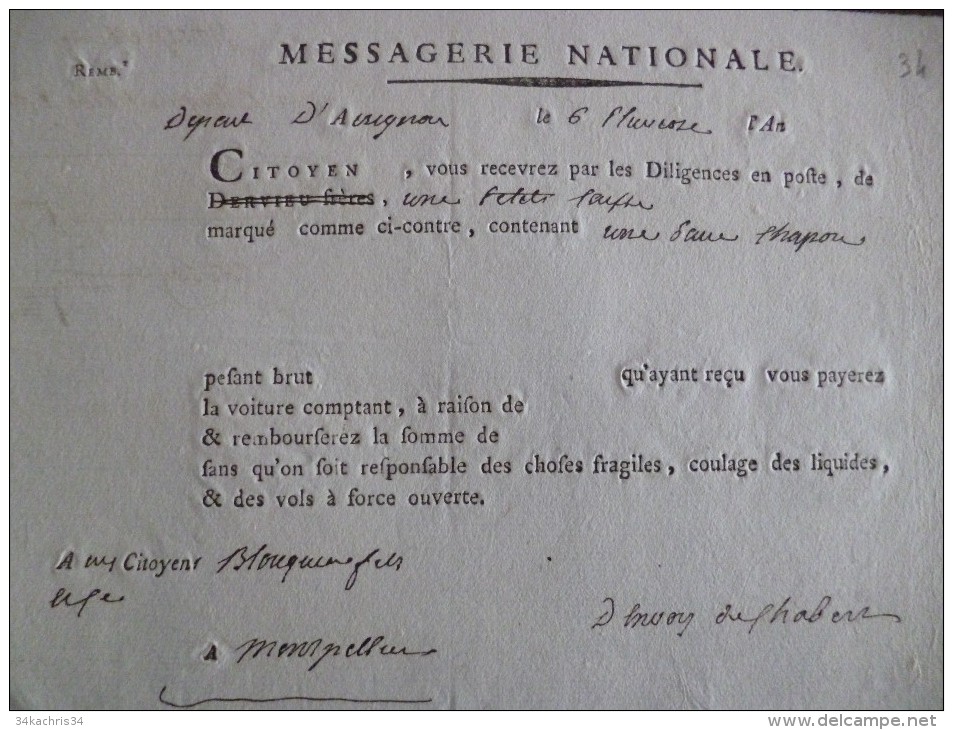 34
MESSAGERIE NATIONALE.
REMB.t
D'Avignon le 6 Pluviose l'An
CITOYEN , vous recevrez par les Diligences en poſte, de
DERVIEU frères, une petite
marqué comme ci-contre, contenant une chapon
peſant brut qu'ayant reçu vous payerez
la voiture comptant, à raiſon de
& rembourſerez la ſomme de
ſans qu'on ſoit reſponſable des choſes fragiles, coulage des liquides,
& des vols à force ouverte.
A Citoyens fils
D'envoy de Chabert
A Montpellier
34kachris34
www.delcampe.net